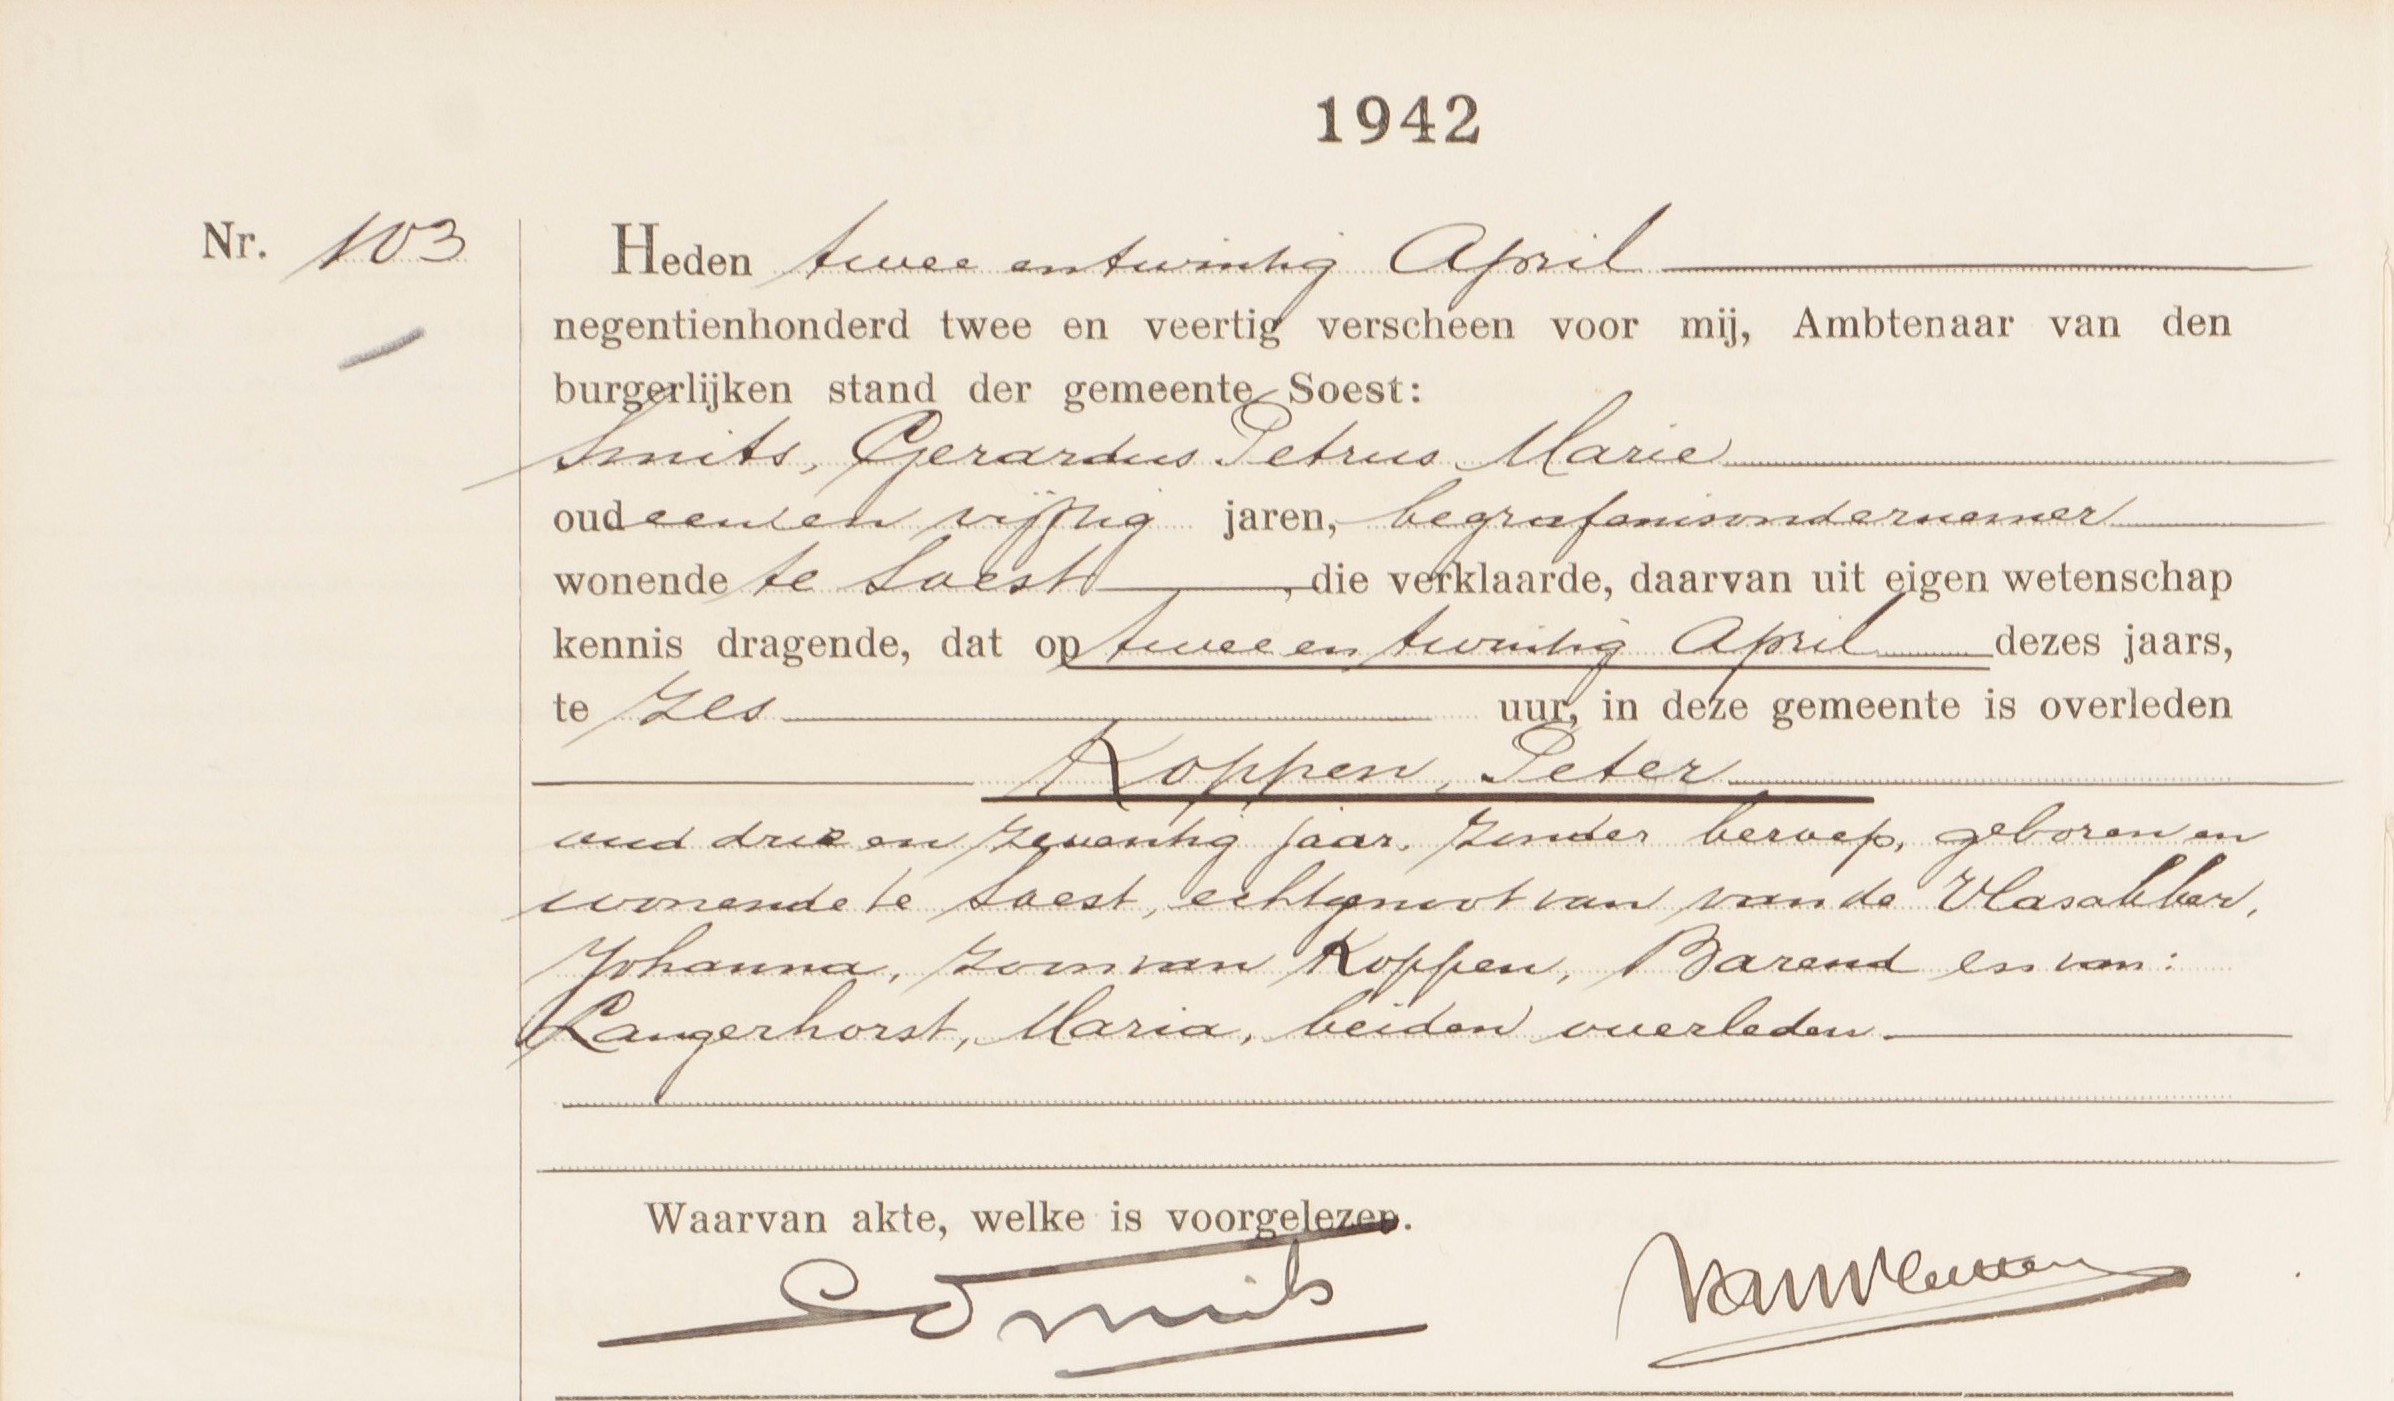 1942
Nr. 103
Heden twee en twintig April
negentienhonderd twee en veertig verscheen voor mij, Ambtenaar van den
burgerlijken stand der gemeente Soest:
Smits, Gerardus Petrus Marie
oud een en vijftig jaren, begrafenisondernemer
wonende te Soest, die verklaarde, daarvan uit eigen wetenschap
kennis dragende, dat op twee en twintig April dezes jaars,
te zes uur, in deze gemeente is overleden
Koppen, Peter
oud drie en zeventig jaar, zonder beroep, geboren en
wonende te Soest, echtgenoot van van de Vlasakker,
Johanna, zoon van Koppen, Barend en van:
Langerhorst, Maria, beiden overleden
Waarvan akte, welke is voorgelezen.
Smits